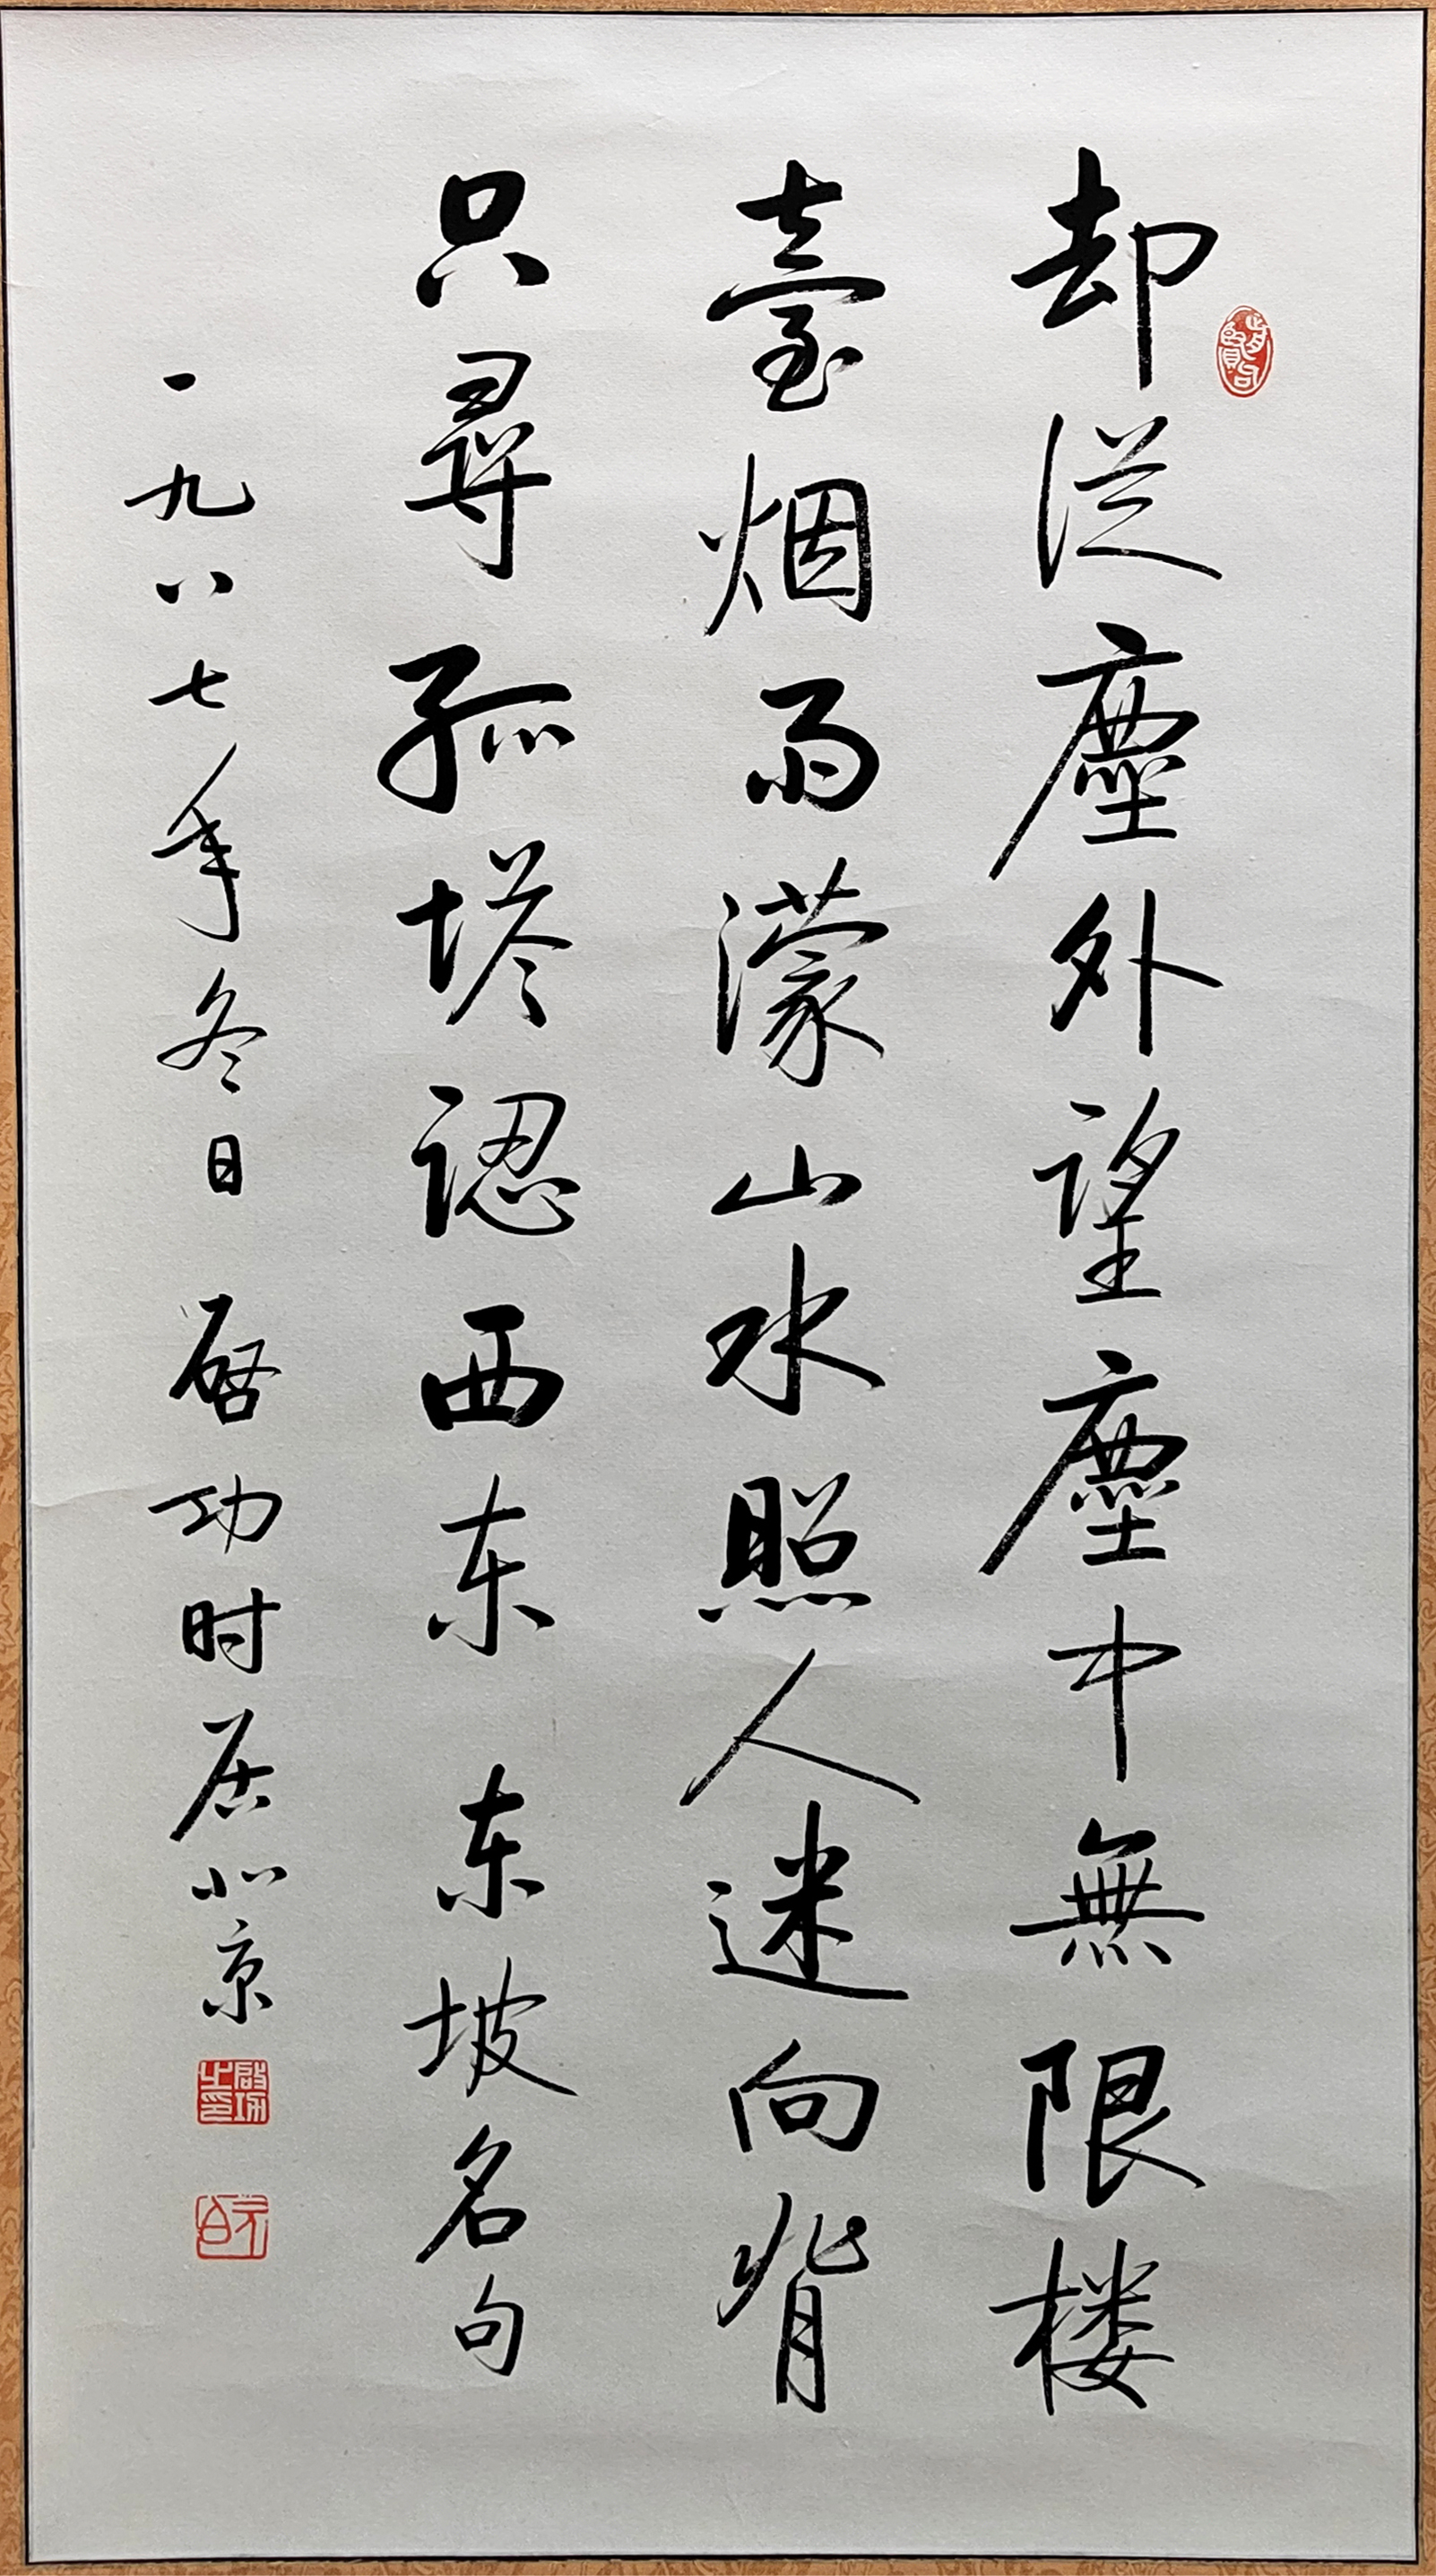 却従塵外望塵中無限楼
臺烟雨濛山水照人迷向背
只尋孤塔認西东 东坡名句
一九八七年冬日 启功时居北京
启功之印
元白